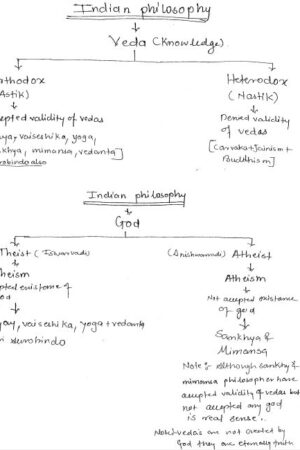 Indian philosophy
Veda (Knowledge)
thodox
Astik)
epted validity of vedas
aya, vaiseshika, yoga,
khya, mimansa, vedanta]
robindo also
Heterodox
(Nastik)
Denied validity
of vedas
[carvaka+Jainism+
Buddhism]
Indian philosophy
God
Theist (Ishwarvadi)
heism
pted existame of
od
yay, vaiseshika, yoga+vedanta
ri aurobindo
(Anishwarvadi) Atheist
Atheism
Not accepted existame
of god
Samkhya &
Mimansa
Note:- although samkhy &
mimansa philosopher have
accepted validity of vedas but
not accepted any god
is real sense.
Note:- veda's are not created by
God they are eternally truth